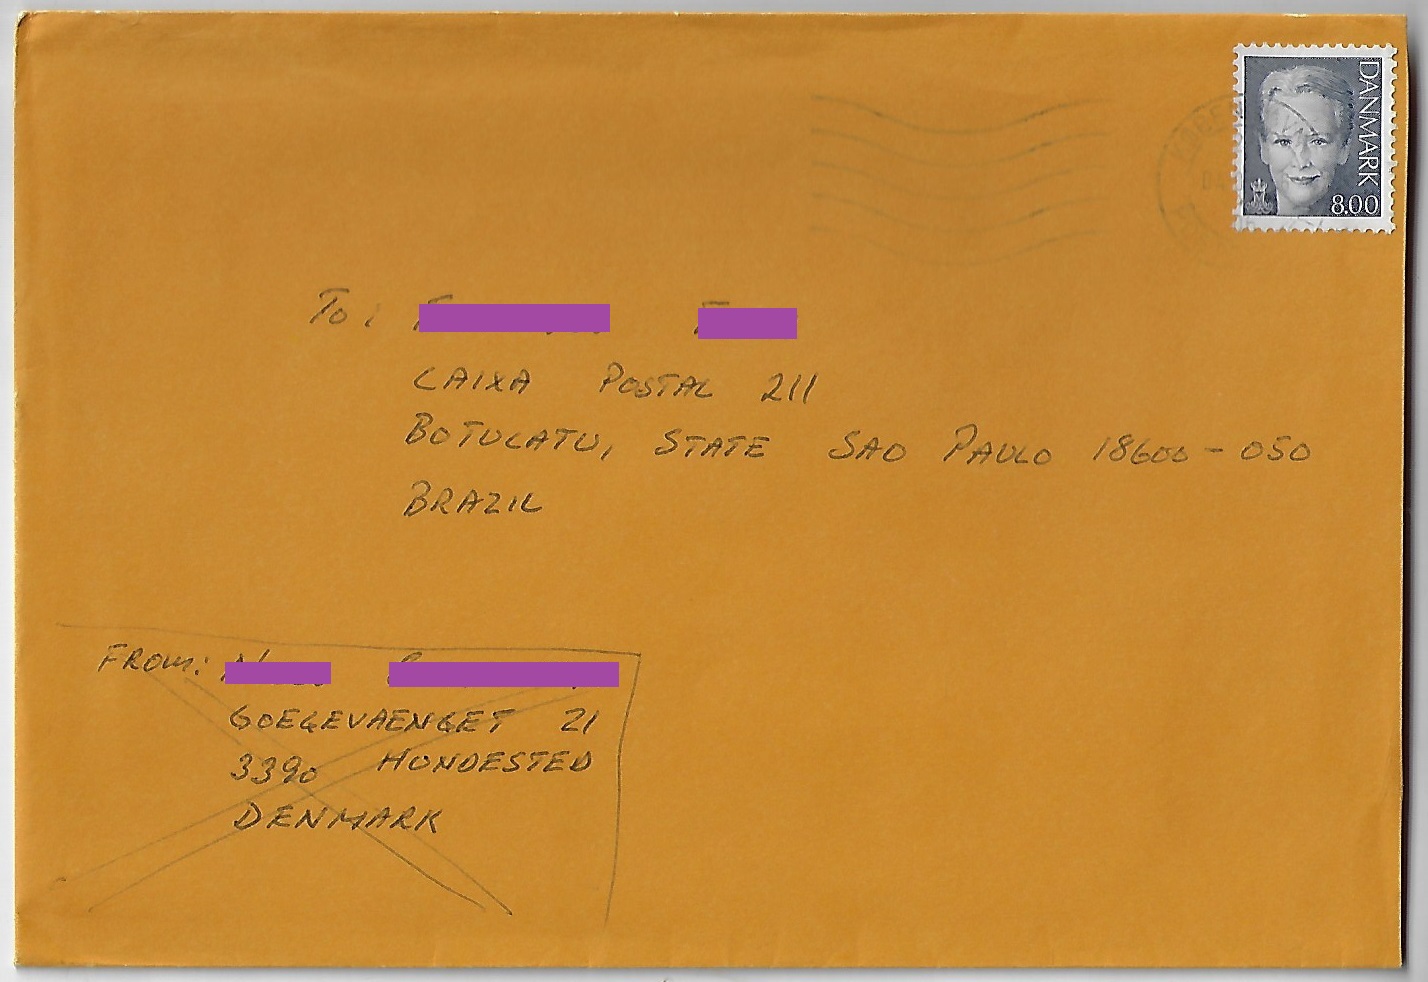 DANMARK
8.00
To:
CAIXA POSTAL 211
BOTUCATU, STATE SAO PAULO 18600-050
BRAZIL
FROM:
GOEGEVAENGET 21
3390 HUNDESTED
DENMARK